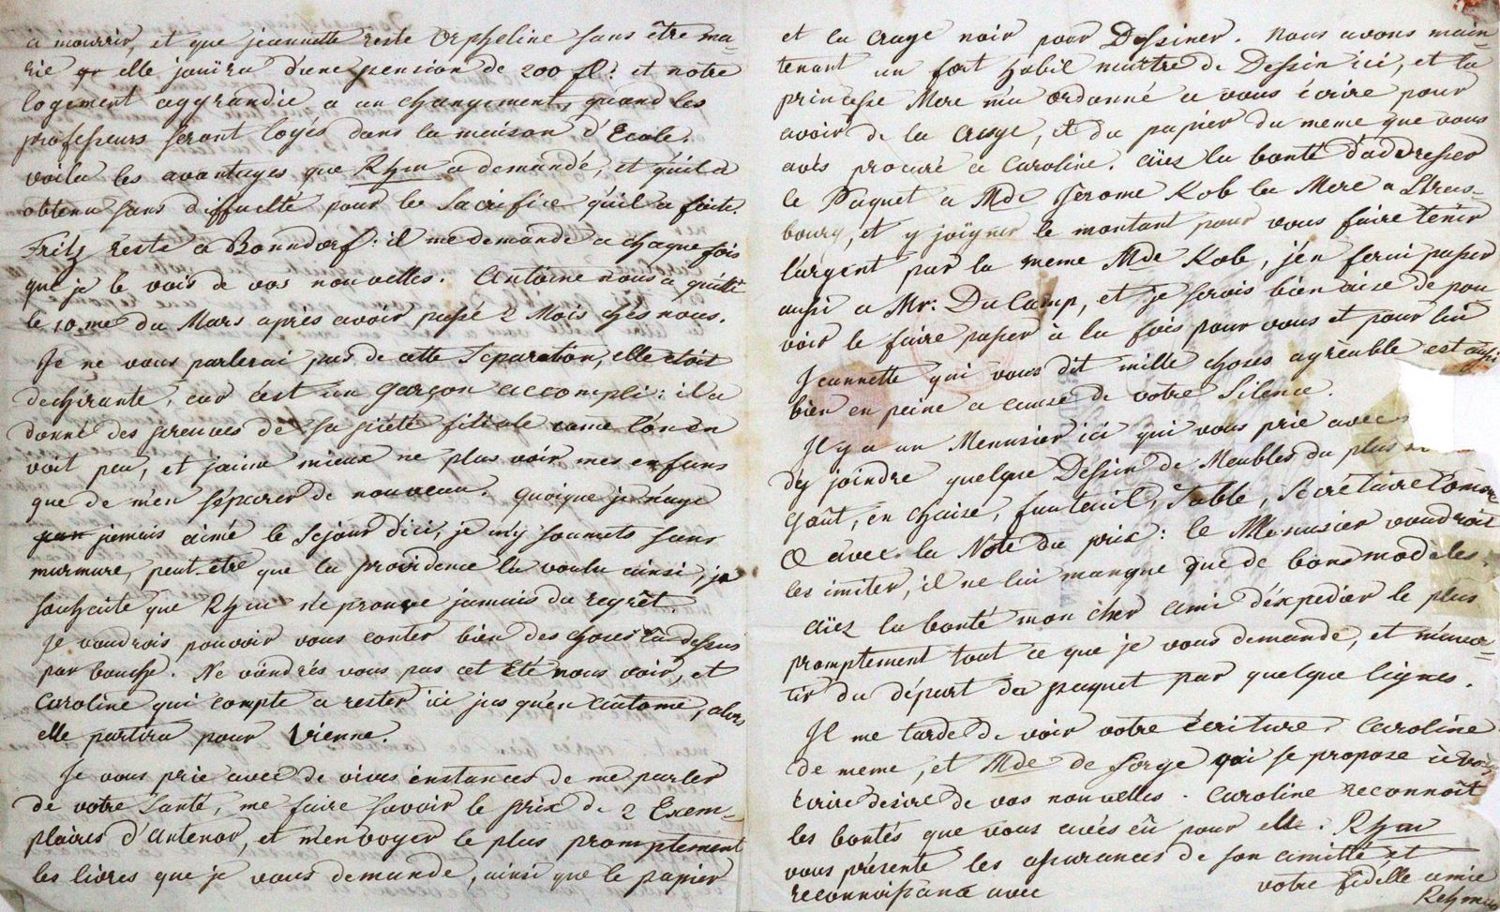 a mourrir, et que jeannette reste Orpheline sans être ma-
rie elle jouira d'une pension de 200 fl: et notre
logement aggrandie a un changement, quand les
professeurs seront logés dans la maison d'Ecole.
voila les avantages que Rhm a demandé, et qu'il a
obtenu sans difficulté pour le Sacrifice qu'il a faite.
Fritz reste a Bonndorf: il me demande a chaque fois
que je le vois de vos nouvelles. Antoine nous a quitté
le 10 me du Mars après avoir passé 2 Mois chés nous.
Je ne vous parlerai pas de cette Separation, elle etoit
dechirante, car c'est un garçon accompli: il a
donné des preuves de sa piété filiale come l'on en
voit peu, et jaime mieux ne plus voir mes enfans
que de m'en séparer de nouveau. quoique je n'aye
jamais aimé le Sejour d'ici, je m'y soumets sans
murmure, peut-être que la providence la voulu ainsi, je
souhaite que Rhm n'eprouve jamais du regrêt.
Je voudrois pouvoir vous conter bien des choses la dessus
par bouche. Ne viendrés vous pas cet Eté nous voir, et
Caroline qui compte a rester ici jusqu'en Autome, alors
elle partira pour Vienne.
Je vous prie avec de vives instances de me parler
de votre Santé, me faire savoir le prix de 2 Exem-
plaires d'Antenor, et m'envoyer le plus promptement
les livres que je vous demande, ainsi que le papier
et la craye noir pour Dessiner. Nous avons main-
tenant un fort habil maitre de Dessin ici, et la
princesse Mere m'a ordonné a vous écrire pour
avoir de la craye, et du papier du meme que vous
avés procuré a Caroline. aÿez la bonté d'addresser
le Paquet a Mde Jèrome Kob la Mere a Stras-
bourg, et y joigner le montant pour vous faire tenir
l'argent par la meme Mde Kob, j'en ferai passer
aussi a Mr: Du Camp, et je serois bien aise de pou
voir le faire passer à la fois pour vous et pour lui
Jeannette qui vous dit mille choses agréable est aussi
bien en peine a cause de votre Silence.
Il y a un Menusier ici qui vous prie avec
d'ÿ joindre quelque Dessin de Meubles du plus
Goût, en chaise, fauteuil, Table, Secretaire
avec la Note du prix: le Menusier voudroit
les imiter, il ne lui manque que de bons modèles.
aÿez la bonté mon cher ami d'éxpedier le plus
promptement tout ce que je vous demande, et m'aver-
tir du départ du paquet par quelque lignes.
Il me tarde de voir votre écriture, Caroline
de meme, et Mde de Sorge qui se propose à vous
écrire desire de vos nouvelles. Caroline reconnoît
les bontés que vous avés eû pour elle. Rhm
vous présente les assurances de son amitié et
reconnoissance avec
votre fidelle amie
Rehmus